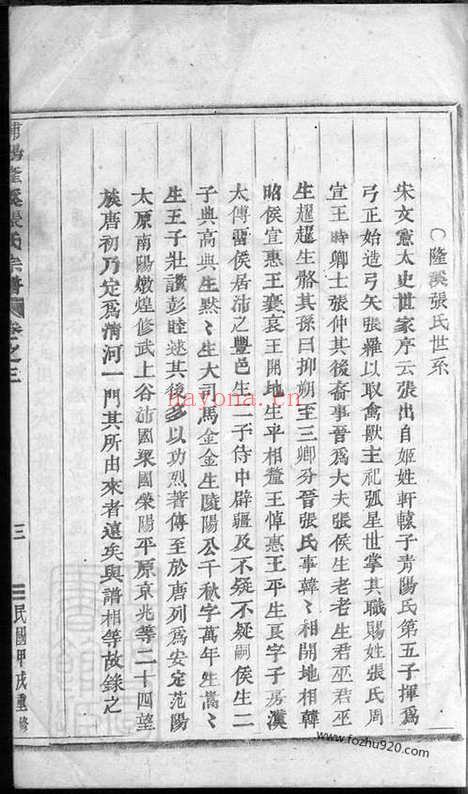 〇隆溪張氏世系
宋文憲太史世家序云張出自姬姓軒轅子青陽氏第五子揮爲
弓正始造弓矢張羅以取禽獸主祀弧星世掌其職賜姓張氏周
宣王時卿士張仲其後裔事晉爲大夫張侯生老老生君巫君巫
生趯趯生骼其孫曰抑朔至三卿分晉張氏事韓〻相開地相韓
昭侯宣惠王襄哀王開地生平相釐王悼惠王平生良字子房漢
太傅畱侯居沛之豐邑生二子侍中辟疆及不疑不疑嗣侯生二
子典高典生默〻生大司馬金金生陵陽公千秋字萬年生嵩〻
生王子壯讚彭睦述其後多以功烈著傳至於唐列爲安定范陽
太原南陽燉煌修武上谷沛國梁國滎陽平原京兆等二十四望
族唐初乃定爲清河一門其所由來者遠矣與譜相等故錄之
浦陽隆溪張氏宗譜 卷之三
三
民國甲戌重修
nayona.cn
www.fozhu920.com